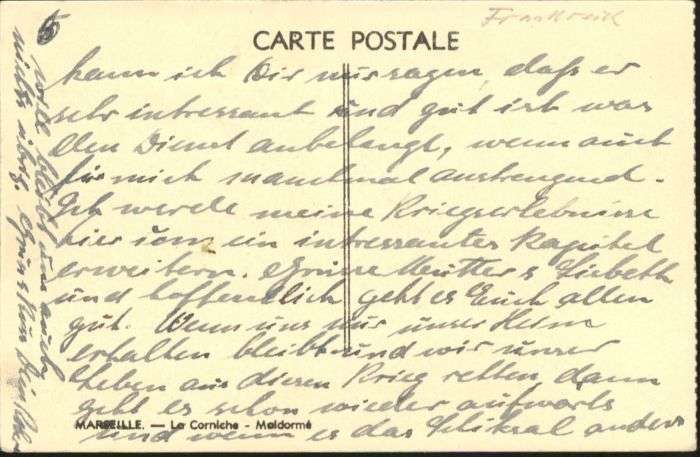 Frankreich
CARTE POSTALE
kann ich Dir nur sagen, daß er
sehr intressant und gut ist was
den Dienst anbelangt, wenn auch
für mich manchmal anstrengend.
Ich werde meine Kriegserlebnisse
hier um ein intressantes Kapitel
erweitern. Grüsse Mutter & Lisbeth
und hoffendlich geht es Euch allen
gut. Wenn uns nur unser Heim
erhalten bleibt und wir unser
Leben aus diesen Krieg retten dann
geht es schon wieder aufwärts
MARSEILLE. — La Corniche - Maldormé
und wenn es das Schiksal anders
will bleibt uns auch
nichts übrig. Gruß & Kuss Dein